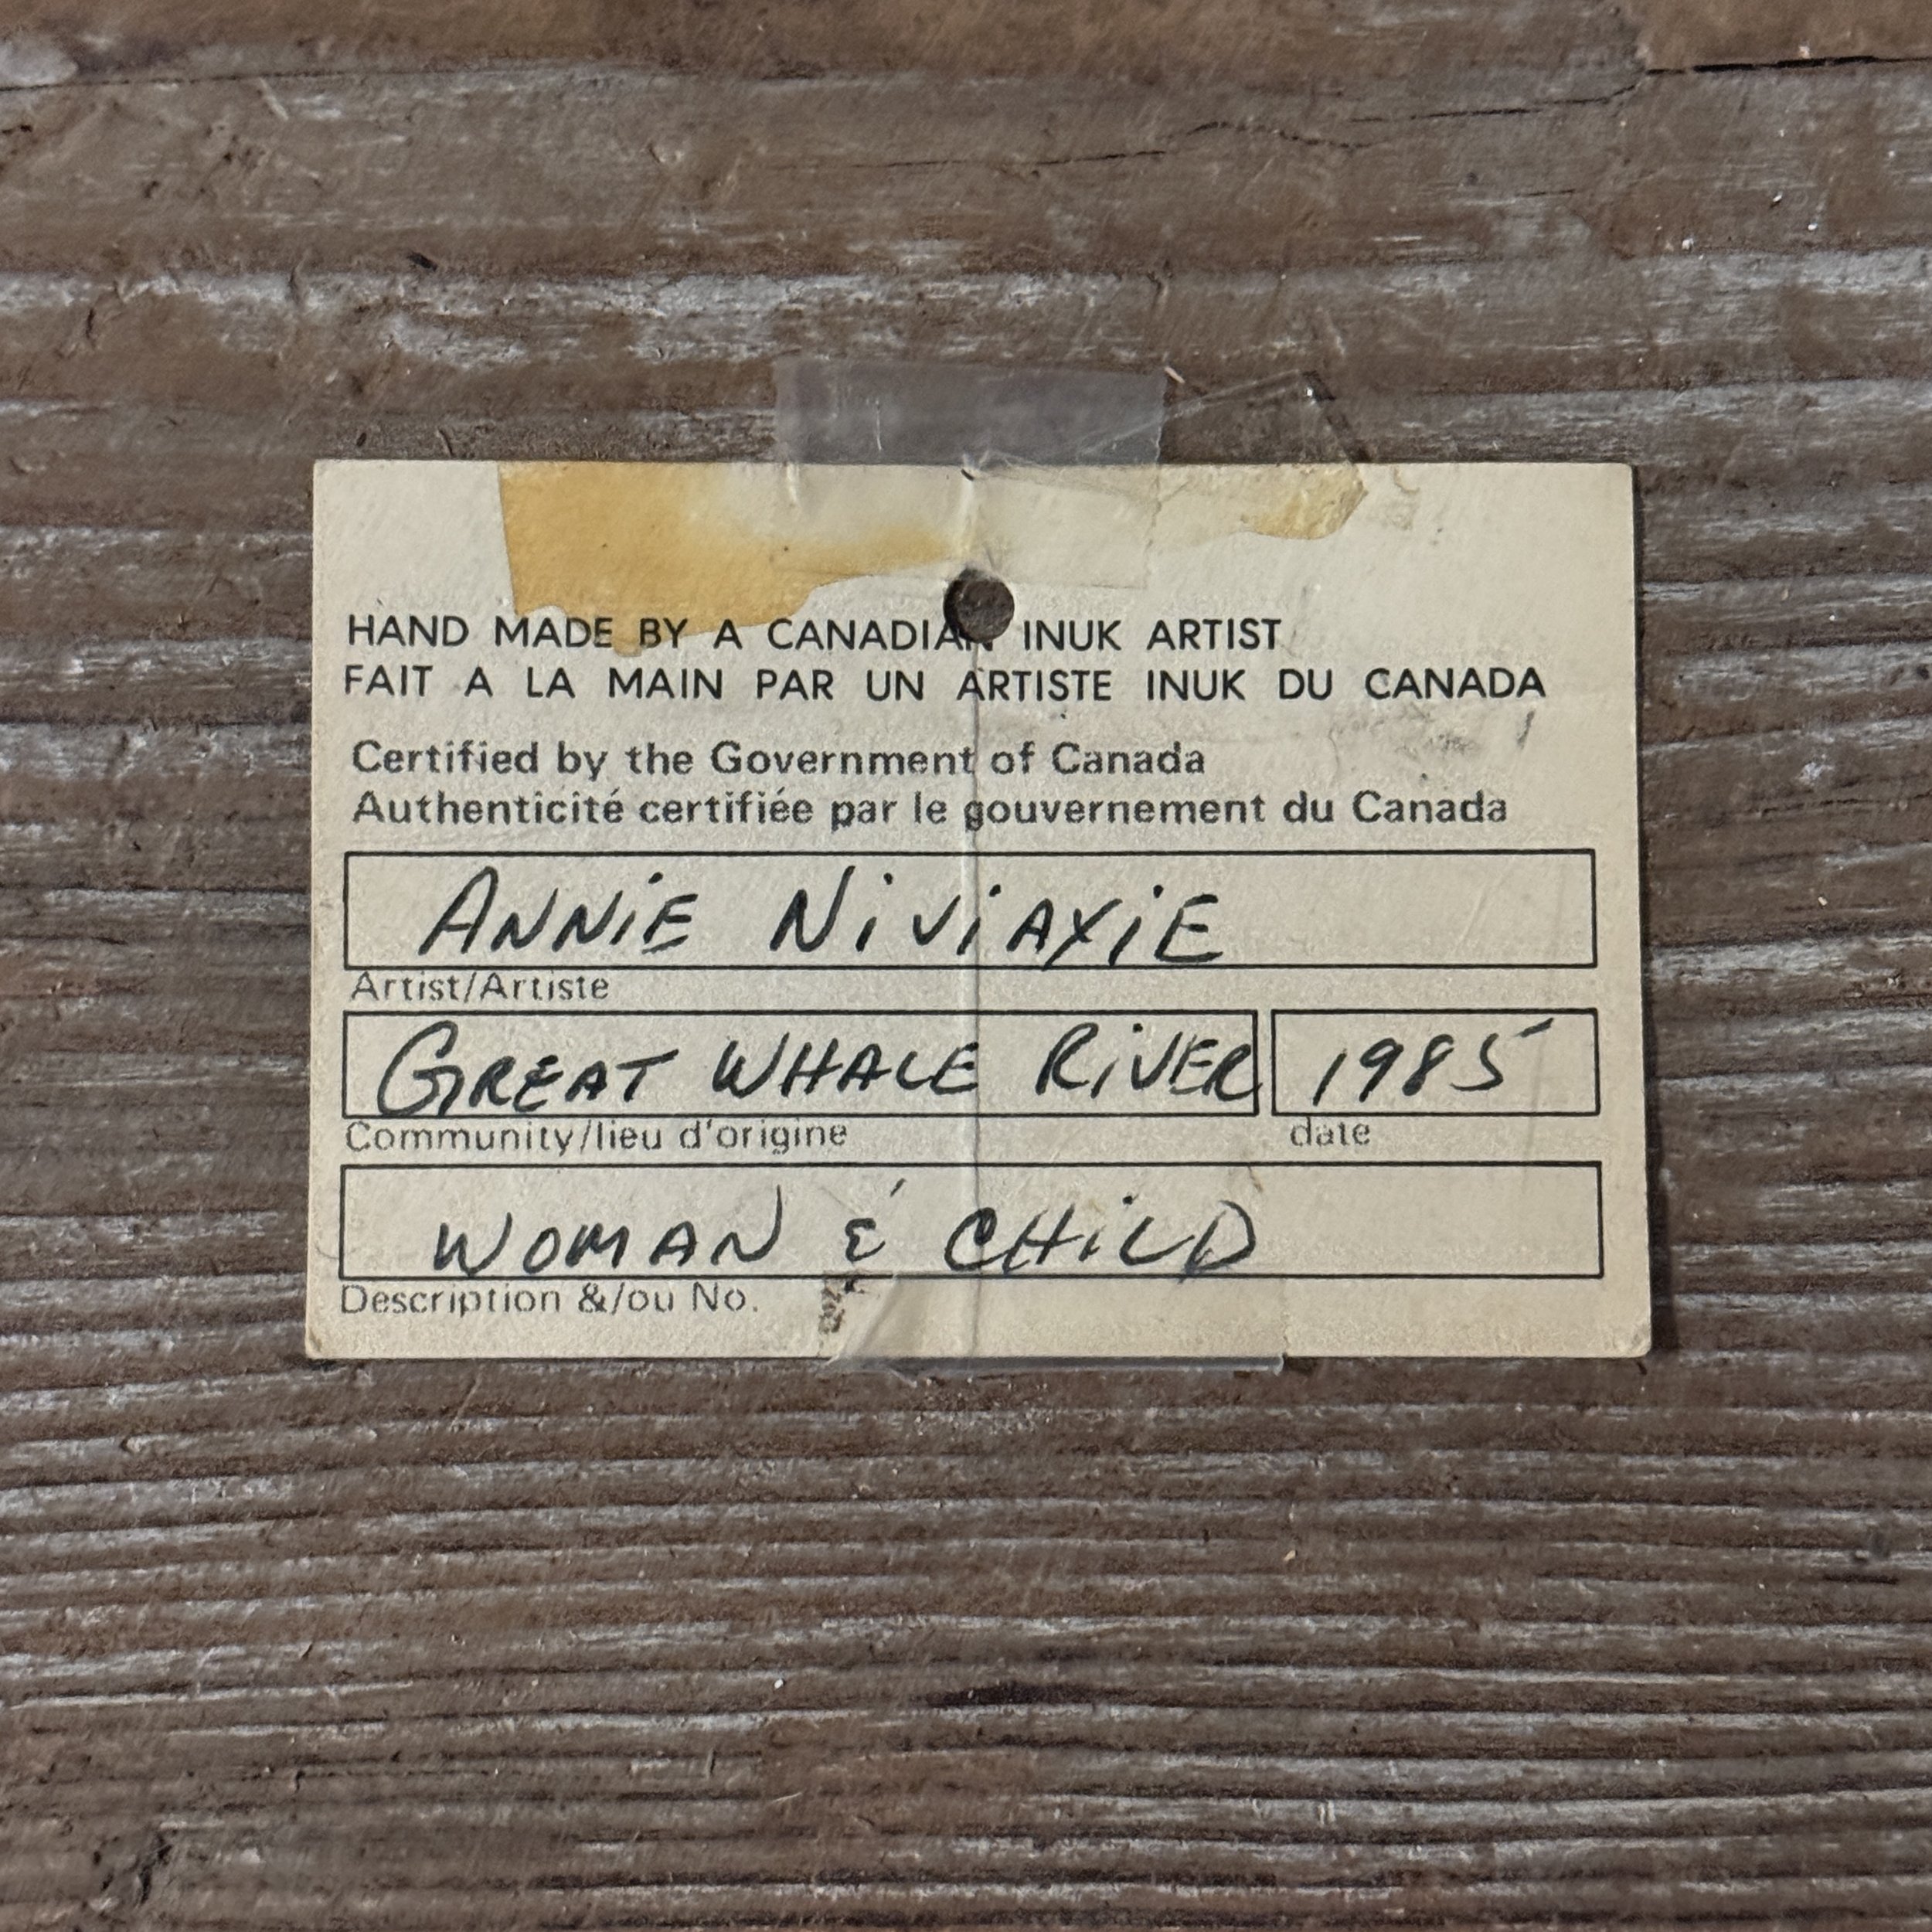 HAND MADE BY A CANADIAN INUK ARTIST
FAIT A LA MAIN PAR UN ARTISTE INUK DU CANADA
Certified by the Government of Canada
Authenticité certifiée par le gouvernement du Canada
ANNIE NIVIAXIE
Artist/Artiste
GREAT WHALE RIVER 1985
Community/lieu d'origine date
WOMAN & CHILD
Description &/ou No.